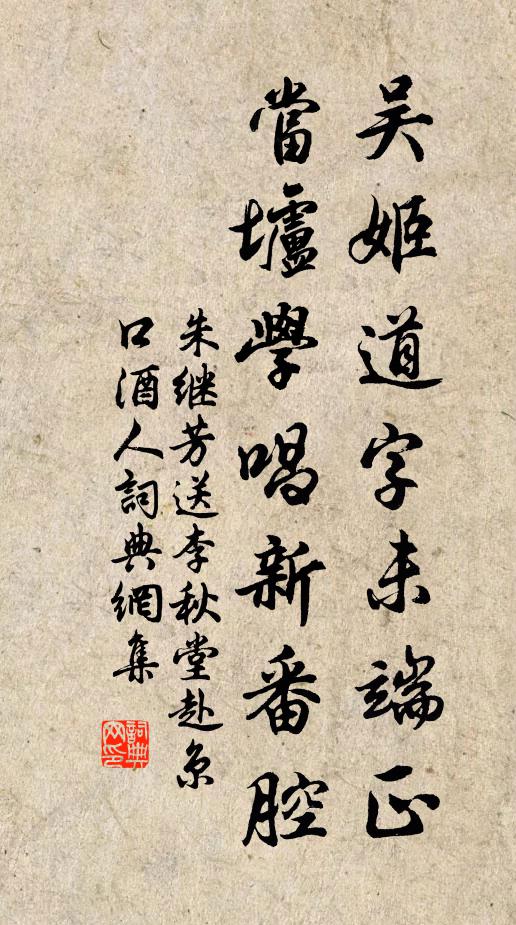 吴姬道字未端正
當壚學唱新番腔
朱继芳送李秋堂赴京
口酒人詞典網集
詞典网印